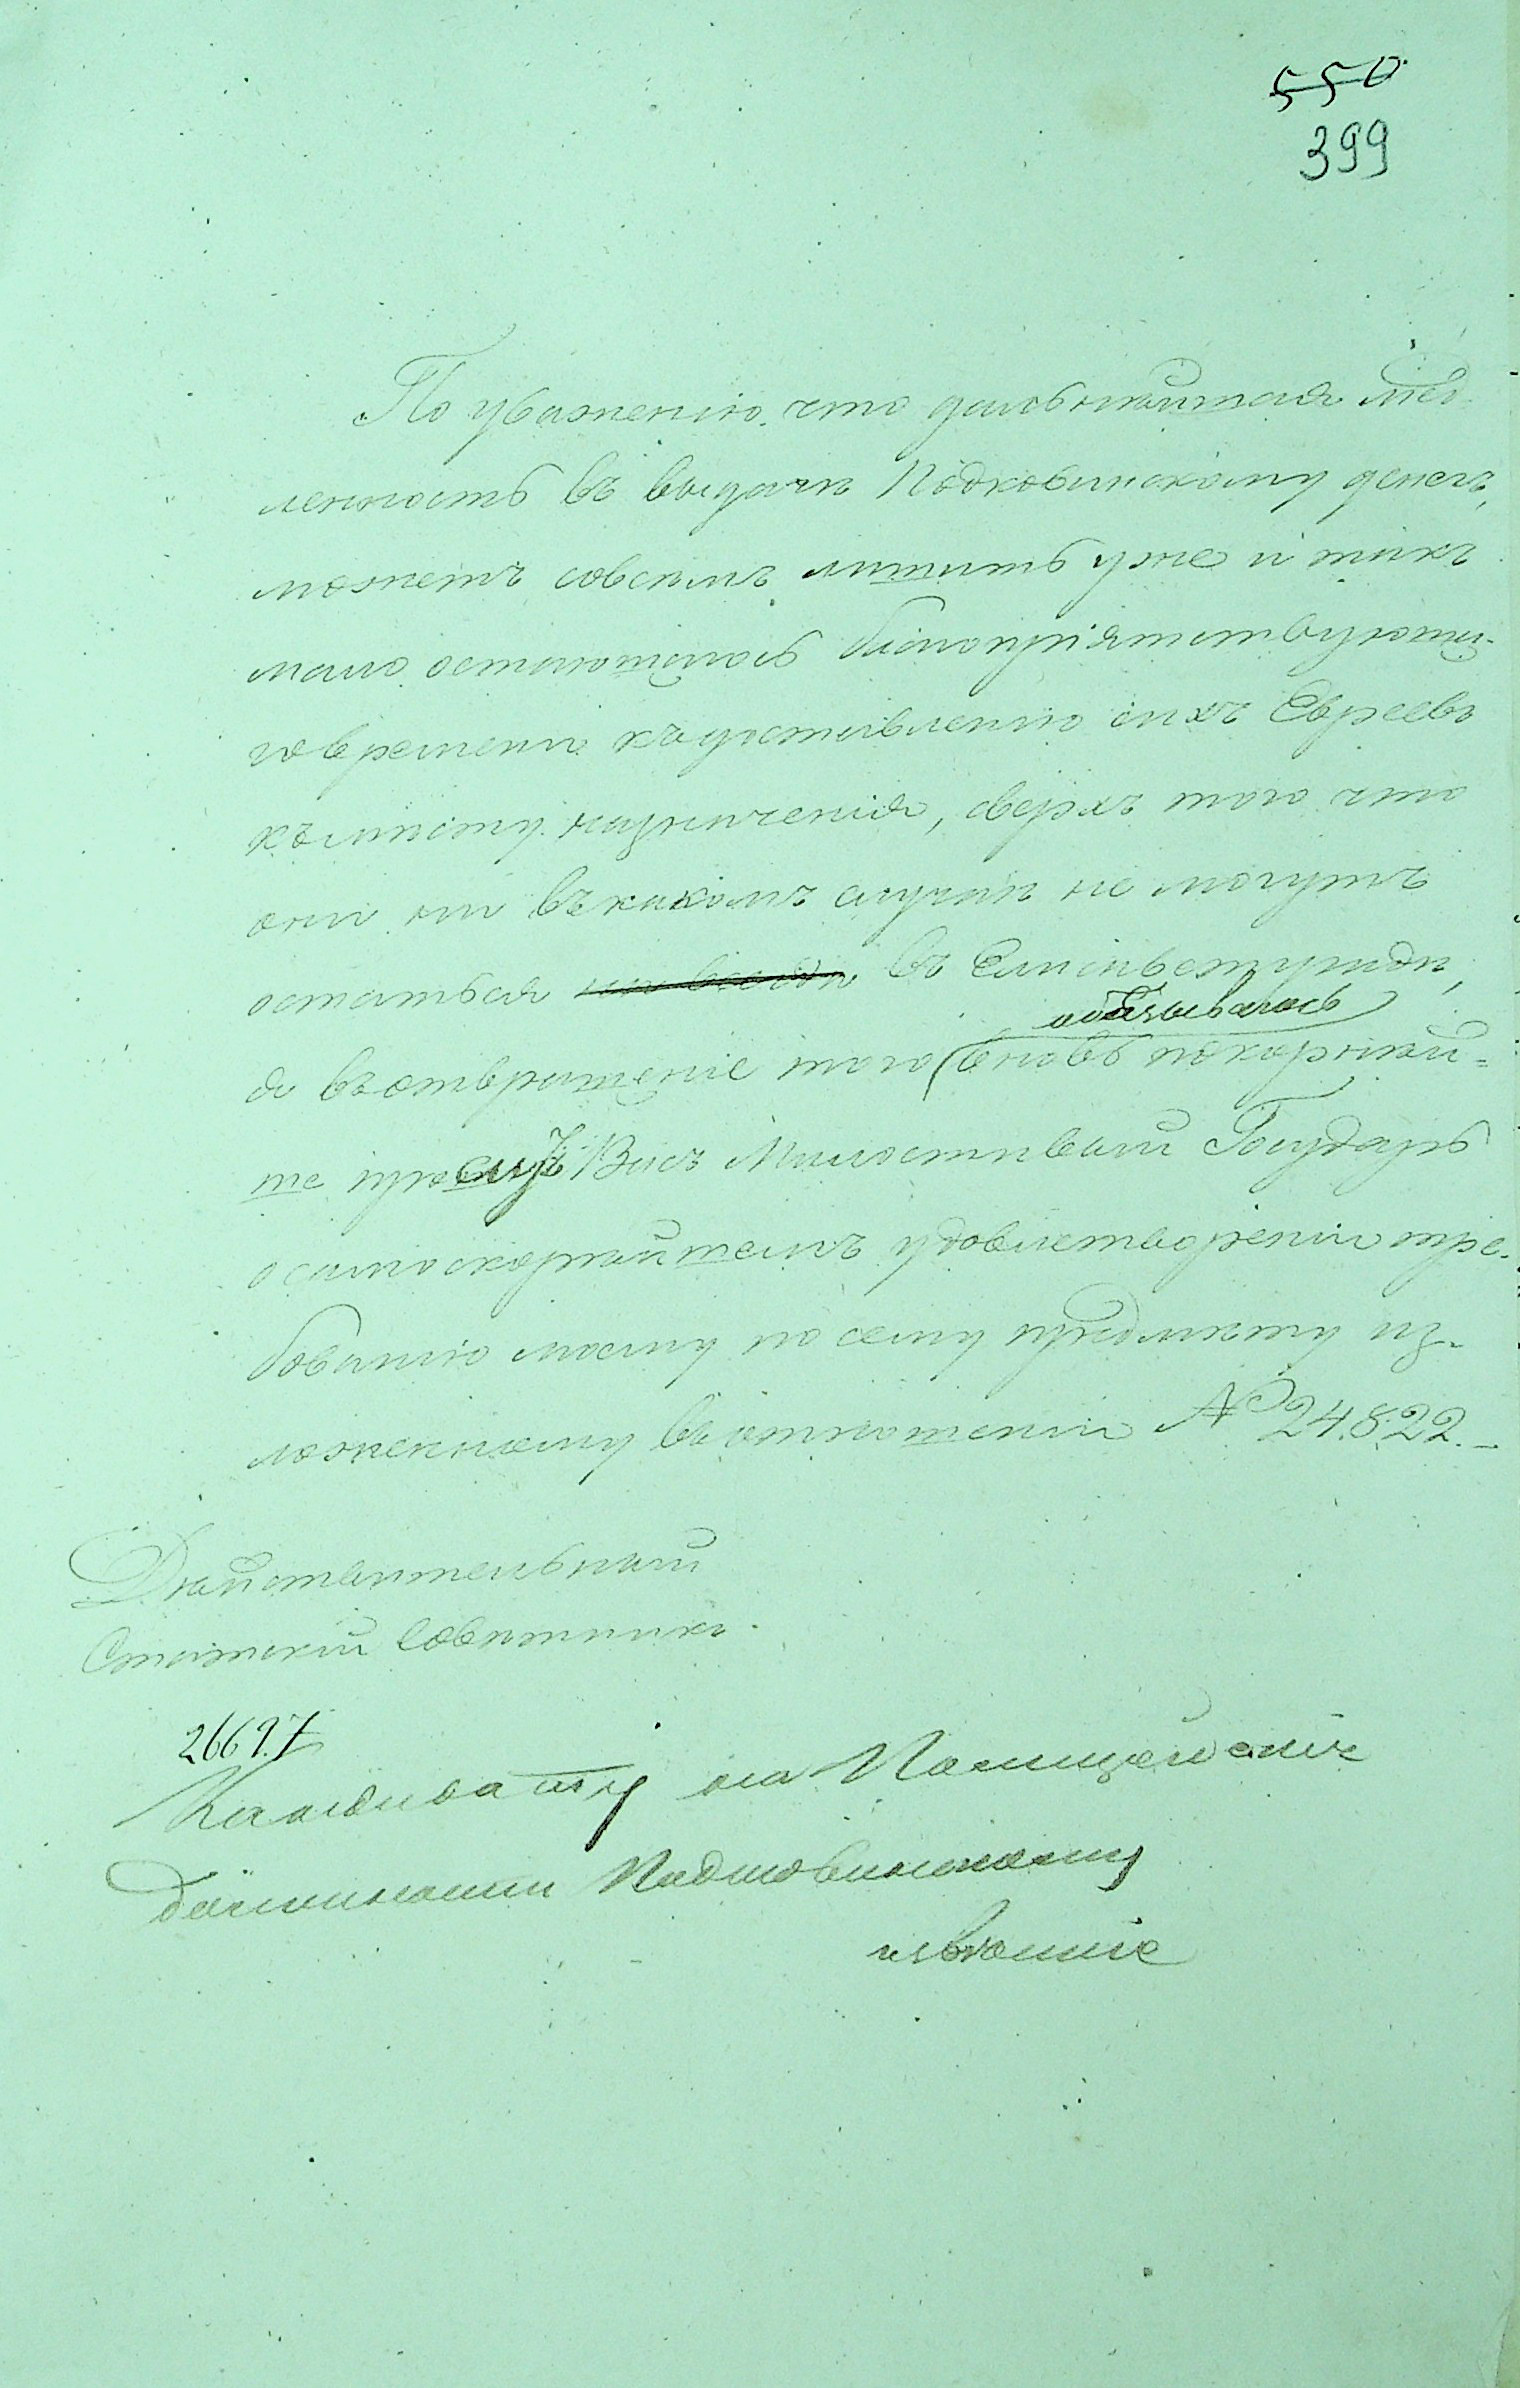 550
399
По уваженію, что дальнѣйшая мед-
ленность въ выдачѣ Подковинскому денегъ,
можетъ совсѣмъ лишить уже и такъ
мало остающагося благопріятствующа-
го времени къ доставленію сихъ Евреевъ
къ мѣсту назначенія, сверхъ того что
они ни въ какомъ случаѣ не могутъ
остаться въ Елисаветградѣ,
я въ отвращеніе того вновь покорнѣй-
ше прошу Васъ Милостивый Государь
о самоскорѣйшемъ удовлетвореніи тре-
бованію моему по сему предмѣту из-
ложенному въ отношеніи № 24.822.
Дѣйствительный
Статскій Совѣтникъ.
26697
Кандидату на Полицейскія
должности Подковинскому